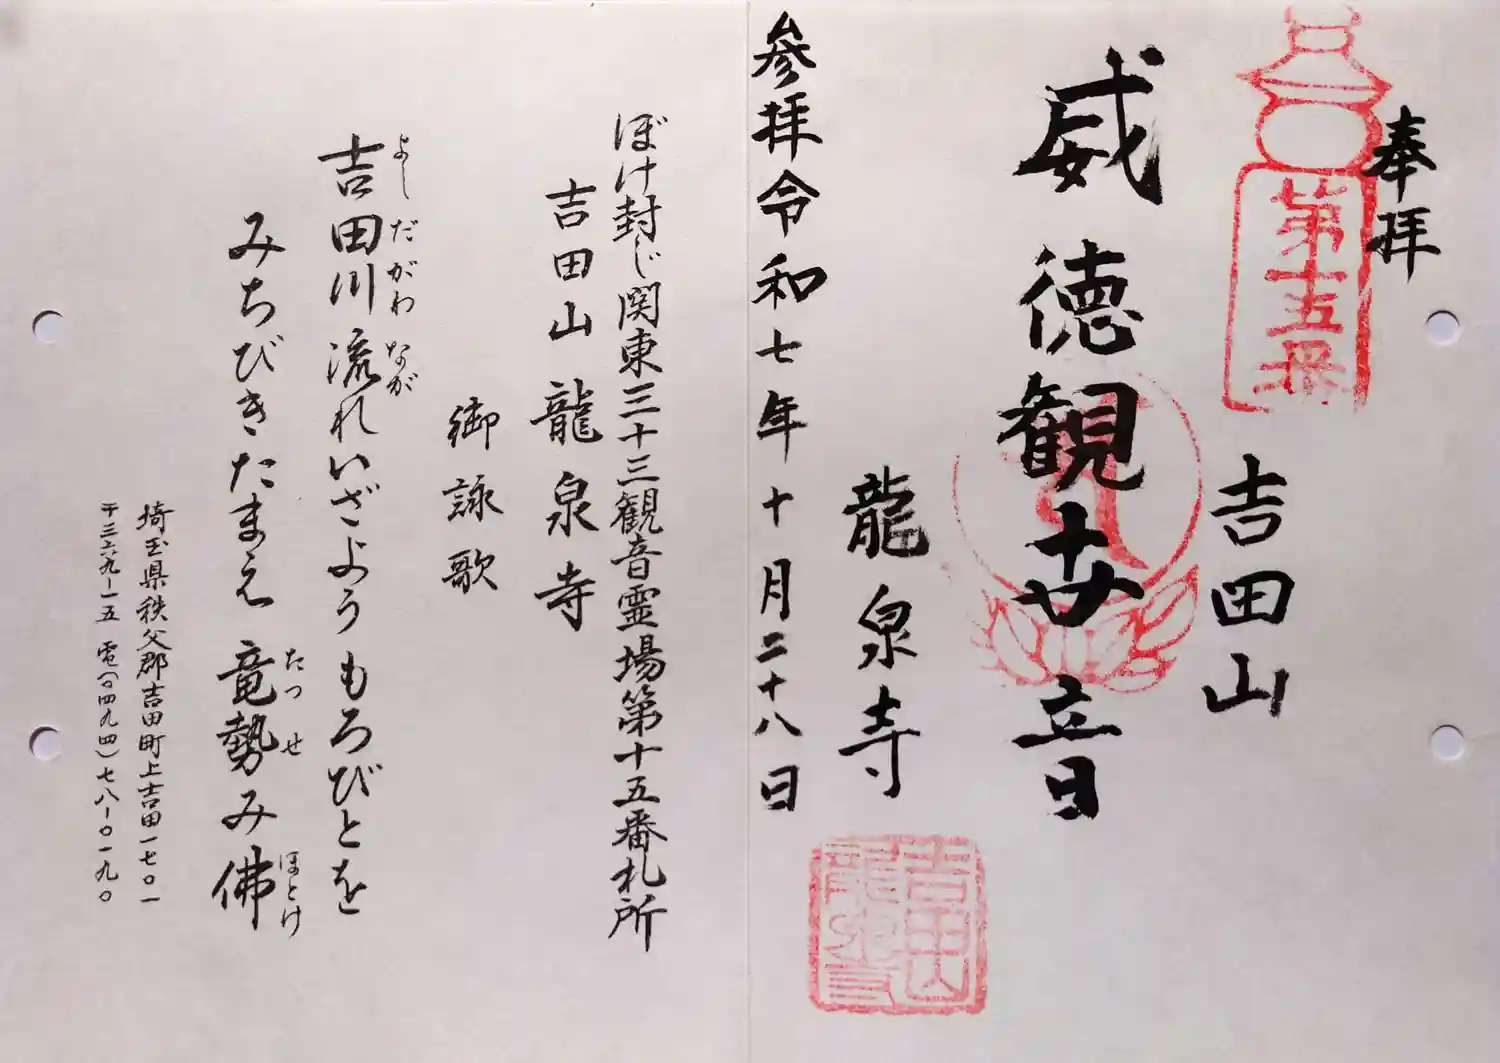 奉拝
第十五番
吉田山
威徳観世音
龍泉寺
吉田山
龍泉寺
参拝令和七年十月二十八日
ぼけ封じ関東三十三観音霊場第十五番札所
吉田山龍泉寺
御詠歌
よしだがわなが
吉田川流れいざようもろびとを
みちびきたまえ竜勢み佛
たつせ ほとけ
埼玉県秩父郡吉田町上吉田一七〇一
〒三六九ー一五 電(〇四九四)七八ー〇一九〇